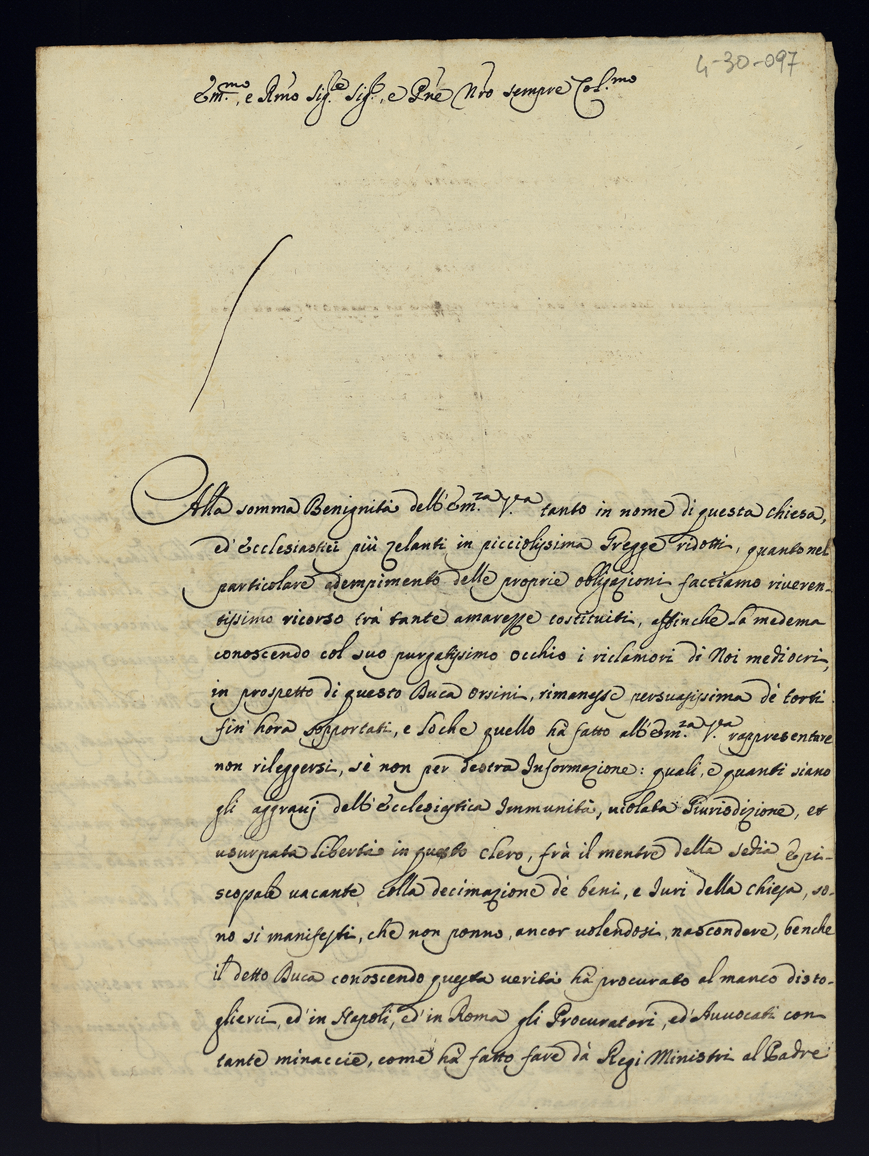 4-30-097
Em.mo, e Rmo Sig.re Sig.re, e Pne Nro sempre Col.mo
Alla somma Benignità dell'Em.za V.ra tanto in nome di questa chiesa,
ed'Ecclesiastici più zelanti in picciolissima Gregge ridotti, quanto nel
particolare adempimento delle proprie obligazioni facciamo riveren-
tissimo ricorso trà tante amarezze costituiti, affinche la medema
conoscendo col suo purgatissimo occhio i riclamori di Noi mediocri,
in prospetto di questo Duca Orsini, rimanesse persuasissima de torti
fin' hora sopportati, e loche quello hà fatto all'Em.za V.ra rappresentare
non rileggersi, sè non per destra Informazione: quali, e quanti siano
gli aggravj dell'Ecclesiastica Immunità, violata Giurisdizione, et
usurpata libertà in questo clero, frà il mentre della sedia Epi-
scopale vacante colla decimazione dè beni, e Iuri della chiesa, so-
no sì manifesti, che non ponno, ancor volendosi, nascondere, benche
il detto Duca conoscendo questa verità hà procurato al manco disto-
glierci, ed'in Napoli, ed'in Roma gli Procuratori, ed'Avvocati con
tante minaccie, come hà fatto fare dà Regi Ministri al Padre